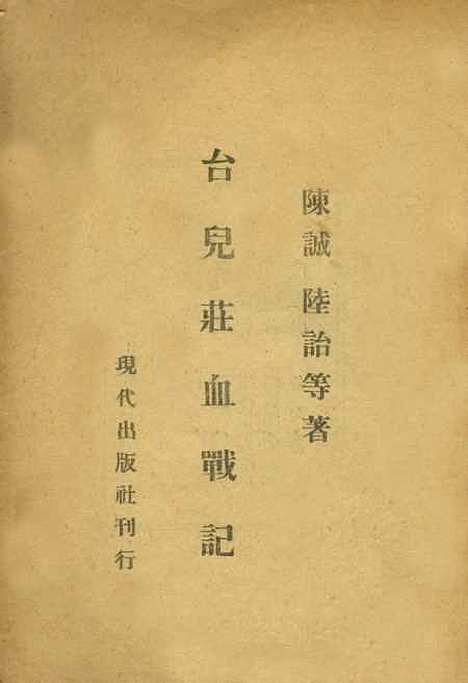 陳誠 陸詒等著
台兒莊血戰記
現代出版社刊行